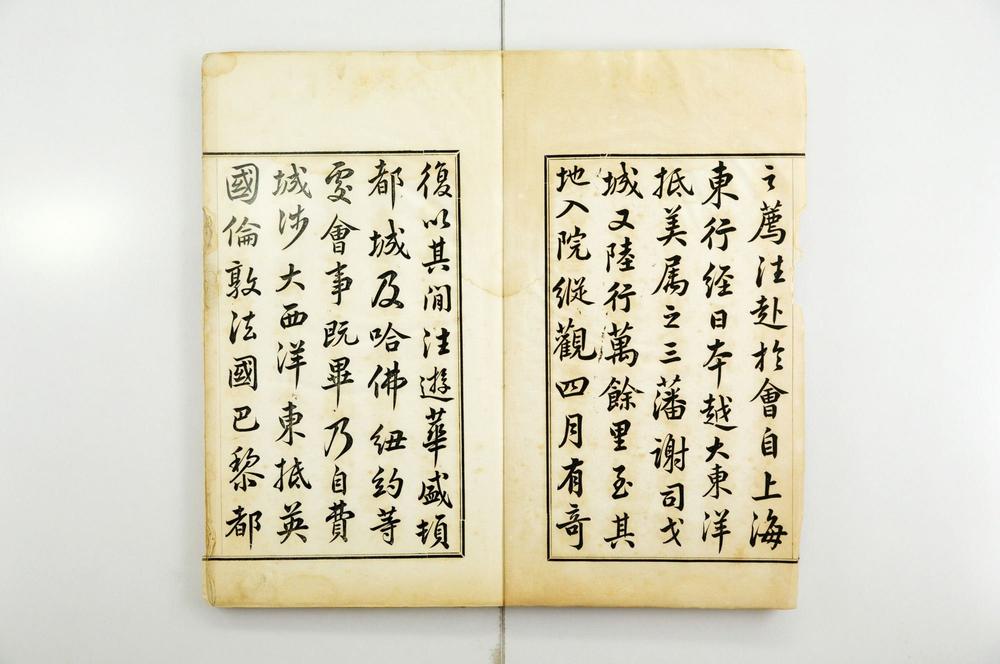 之薦往赴於會自上海
東行經日本越大東洋
抵美属之三藩谢司戈
城又陸行萬餘里至其
地入院縱觀四月有奇
復以其间往遊華盛頓
都城及哈佛纽約等
處會事既畢乃自費
城涉大西洋東抵英
國倫敦法國巴黎都